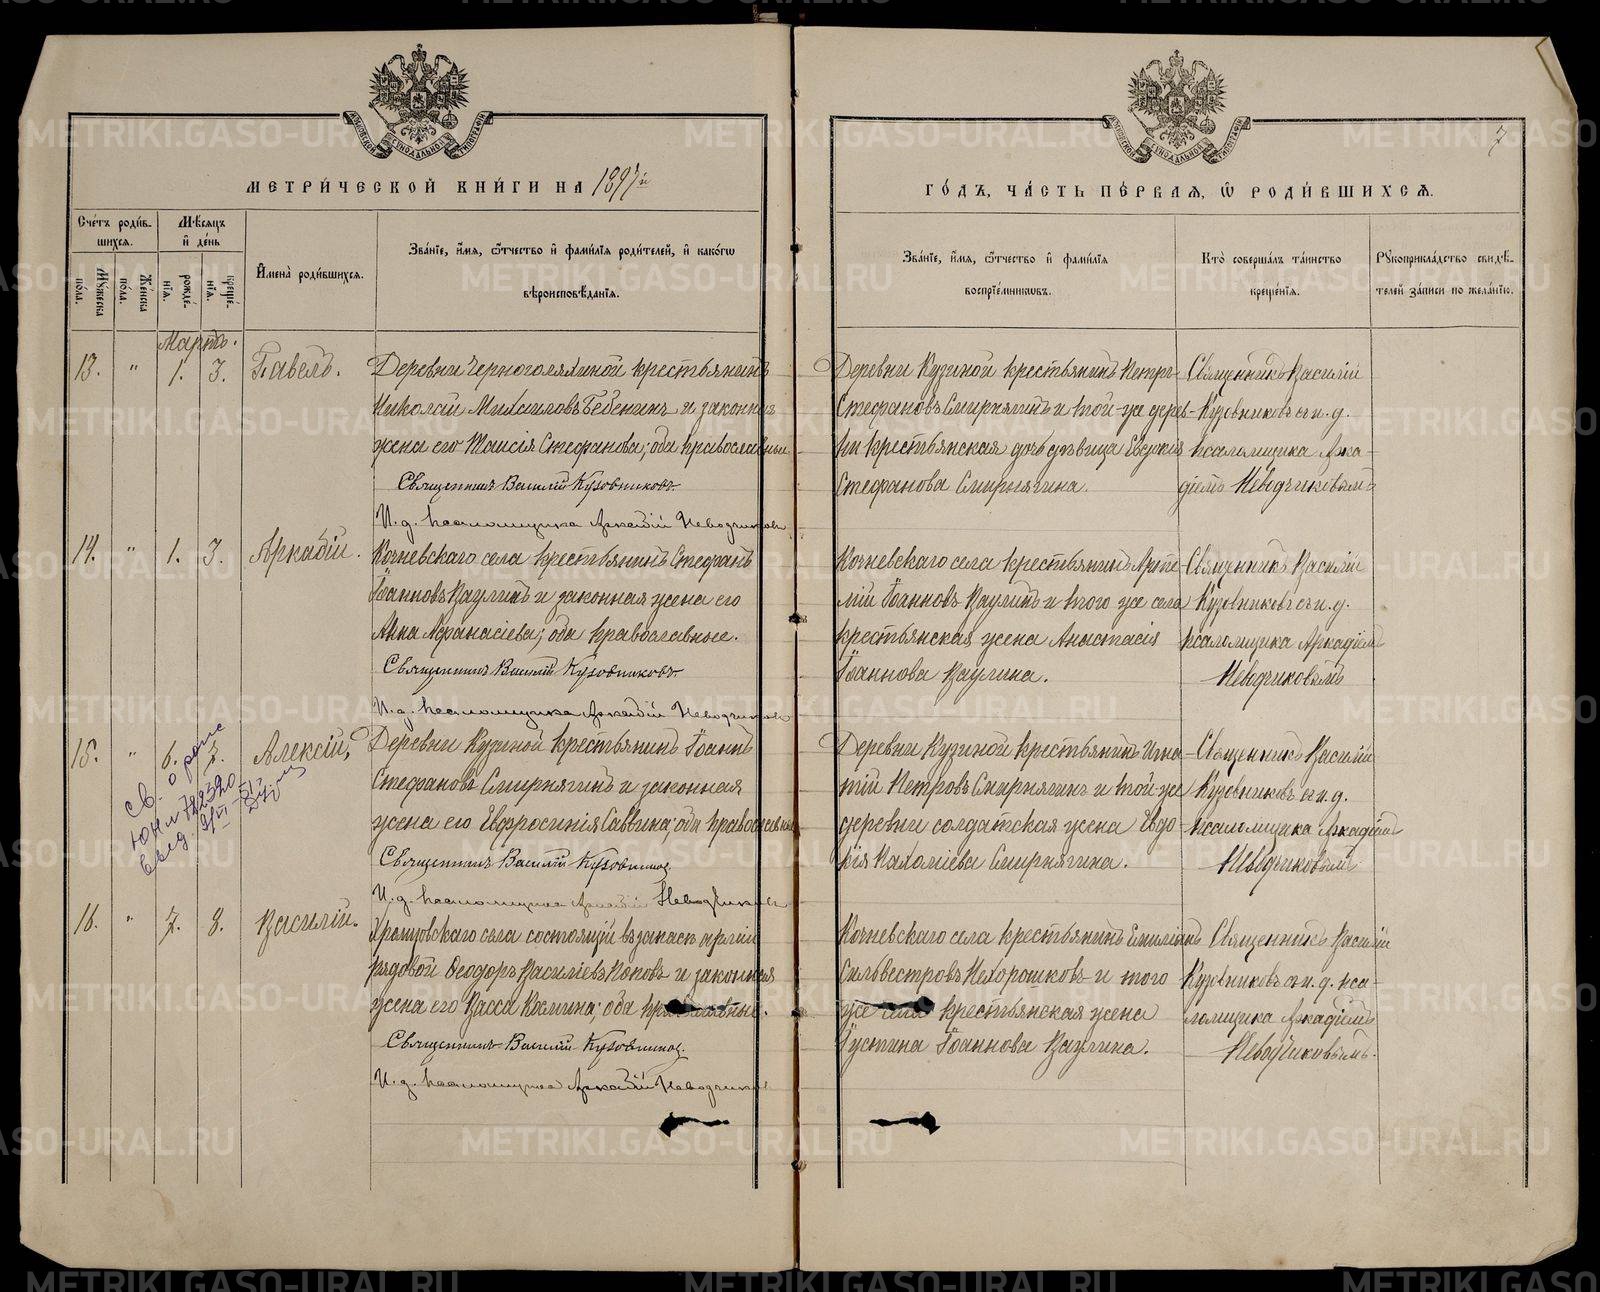 МЕТРИЧЕСКОЙ КНИГИ НА 1897й
Счетъ родив-
шихся.
Мѣсяцъ
и день
Мужеска пола.
Женска пола.
рожде-
нія.
креще-
нія.
Имена родившихся.
Званіе, имя, отчество и фамилія родителей, и какого
вѣроисповѣданія.
Мартъ.
13. " 1. 3. Павелъ.
Деревни Черноголяхиной крестьянинъ
Николай Михаиловъ Бебенинъ и законная
жена его Таисія Стефанова; оба православные
Священникъ Василій Кузовниковъ
И. д. псаломщика Аркадій Неводчиковъ
14. " 1. 3. Аркадій.
Кочневскаго села крестьянинъ Стефанъ
Іоанновъ Ваулинъ и законная жена его
Анна Афанасіева; оба православные.
Священникъ Василій Кузовниковъ
И. д. псаломщика Аркадій Неводчиковъ
15. " 6. 7. Алексій,
св. о рожд
Деревни Кузиной крестьянинъ Іоаннъ
Стефановъ Смирнягинъ и законная
жена его Евфросинія Саввина; оба православные
Священникъ Василій Кузовников
И. д. псаломщика Аркадій Неводчиков
16. " 7. 8. Василій.
Храмцовскаго села состоящій въ запасѣ арміи
рядовой Феодоръ Василіевъ Поповъ и законная
жена его Васса Космина; оба православные.
Священникъ Василій Кузовников
И. д. псаломщика Аркадій Неводчиков
7
ГОДЪ, ЧАСТЬ ПЕРВАЯ, Ѿ РОДИВШИХСЯ.
Званіе, имя, отчество и фамилія
воспріемниковъ.
Кто совершалъ таинство
крещенія.
Рукоприкладство свидѣ-
телей записи по желанію.
Деревни Кузиной крестьянинъ Петръ
Стефановъ Смирнягинъ и той-же дерев-
ни крестьянская дочь дѣвица Евдокія
Стефанова Смирнягина.
Священникъ Василій
Кузовниковъ съ и. д.
псаломщика Арка-
діемъ Неводчиковымъ
Кочневскаго села крестьянинъ Арте-
мій Іоанновъ Ваулинъ и того же села
крестьянская жена Анастасія
Іоаннова Ваулина.
Священникъ Василій
Кузовниковъ съ и. д.
псаломщика Аркадіемъ
Неводчиковымъ
Деревни Кузиной крестьянинъ Игна-
тій Петровъ Смирнягинъ и той-же
деревни солдатская жена Евдо-
кія Пахоміева Смирнягина.
Священникъ Василій
Кузовниковъ съ и. д.
псаломщика Аркадіемъ
Неводчиковымъ
Кочневскаго села крестьянинъ Емиліанъ
Сильвестровъ Нехорошковъ и того
же села крестьянская жена
Іустина Іоаннова Ваулина.
Священникъ Василій
Кузовниковъ съ и. д. пса-
ломщика Аркадіемъ
Неводчиковымъ.
METRIKI.GASO-URAL.RU